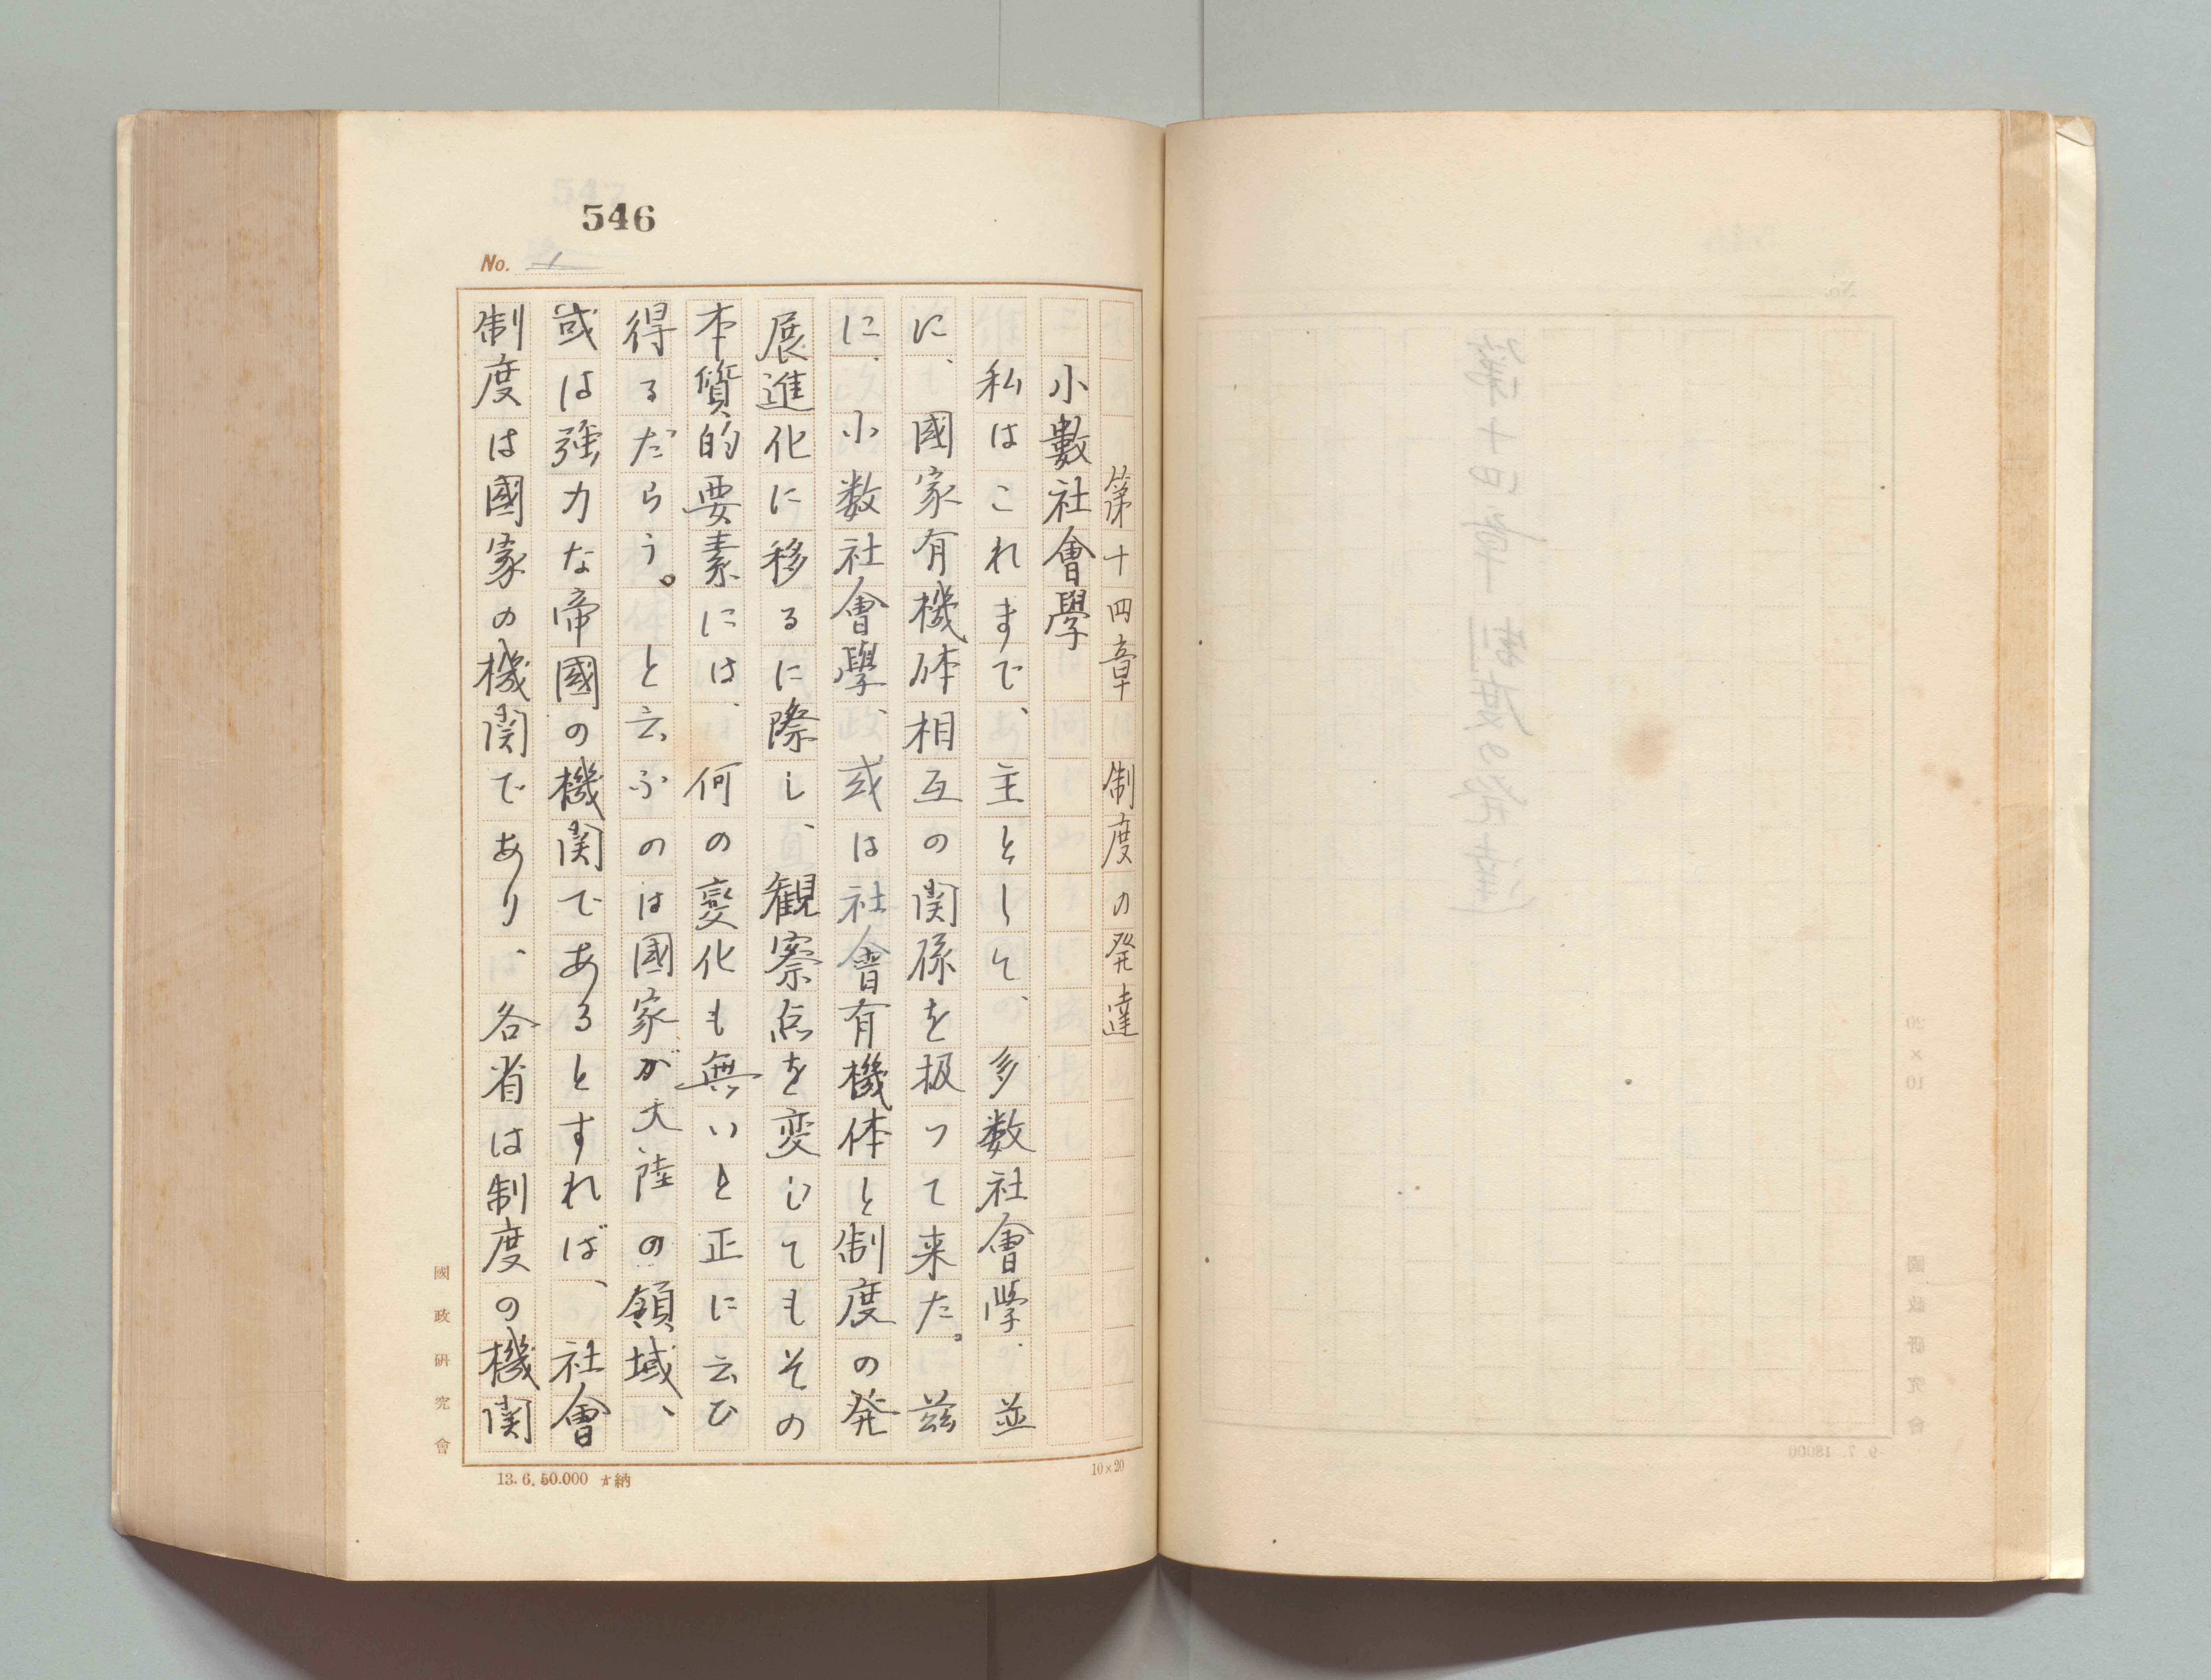 546
No. 1
第十四章 制度の発達
小數社會學
私はこれまで、主として、多数社會學、並
に、國家有機体相互の関係を扱つて来た。茲
に、小数社會學、或は社會有機体と制度の発
展進化に移るに際し、観察点を変じてもその
本質的要素には、何の変化も無いと正に云ひ
得るだらう。と云ふのは國家が大陸の領域、
或は強力な帝國の機関であるとすれば、社會
制度は國家の機関であり、各省は制度の機関
國政研究會
13.6.50.000 納
10×20